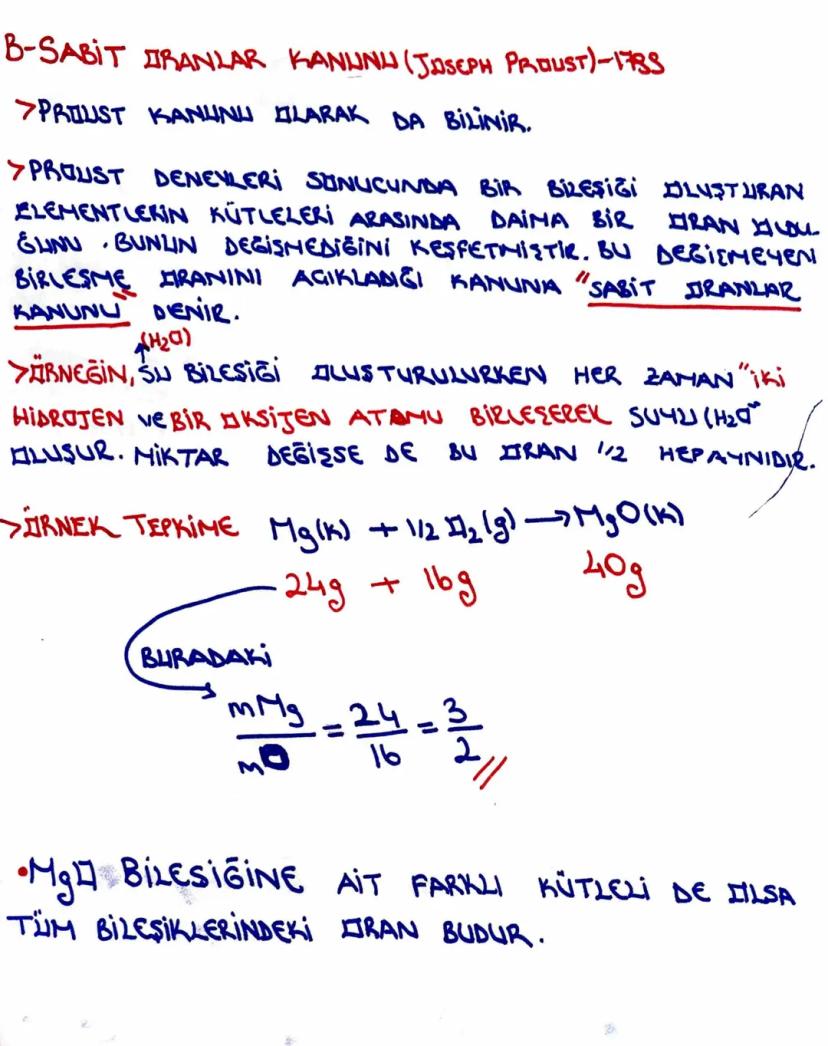 B-SABİT ORANLAR KANUNU (JOSEPH PROUST)-1799
>PROUST KANUNU OLARAK DA BİLİNİR.
>PROUST DENEYLERİ SONUCUNDA BİR BİLEŞİĞİ OLUŞTURAN
ELEMENTLERİN KÜTLELERİ ARASINDA DAİMA BİR ORAN OLDU
ĞUNU . BUNUN DEĞİŞMEDİĞİNİ KEŞFETMİŞTİR. BU DEĞİŞMEYEN
BİRLEŞME ORANINI AÇIKLADIĞI KANUNA "SABİT ORANLAR
KANUNU" DENİR.
(H₂O)
>ÖRNEĞİN, SU BİLEŞİĞİ OLUŞTURULURKEN HER ZAMAN "İKİ
HİDROJEN VE BİR OKSİJEN ATOMU BİRLEŞEREK SUYU (H₂O"
OLUŞUR. MİKTAR DEĞİŞSE DE BU ORAN 1/2 HEP AYNIDIR.
>ÖRNEK TEPKİME Mg(k) + 1/2 O₂(g) → MgO(k)
24g + 16g 40g
BURADAKİ
mMg/mO = 24/16 = 3/2 //
•MgO BİLESİĞİNE AİT FARKLI KÜTLELİ DE OLSA
TÜM BİLEŞİKLERİNDEKİ ORAN BUDUR.